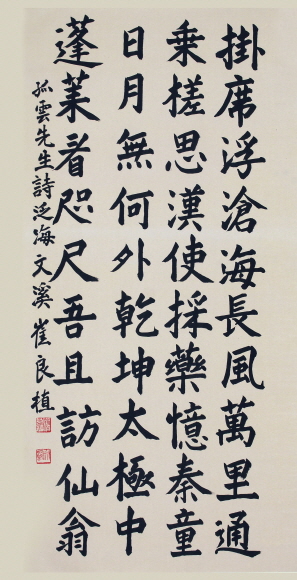 掛席浮滄海長風萬里通
乗槎思漢使採藥憶秦童
日月無何外乾坤太極中
蓬莱看咫尺吾且訪仙翁
孤雲先生詩泛海文溪崔良植